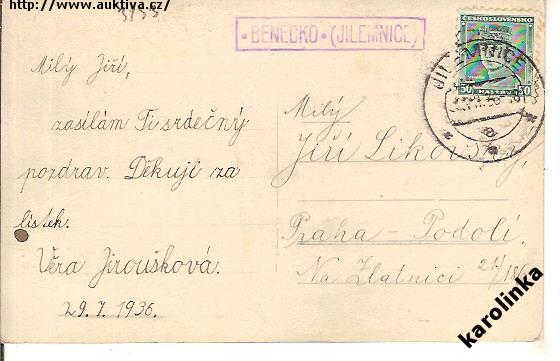 http://www.auktiva.cz/
3133
• BENECKO • (JILEMNICE)
ČESKOSLOVENSKO
50 HALÉŘŮ 50
JILEMNICE
a
Milý Jiří,
zasílám Ti srdečný
pozdrav. Děkuji za
lístek.
Věra Jiroušková.
29.7.1936.
Milý
Jiří Likovský,
Praha – Podolí.
Na Zlatnici
karolinka